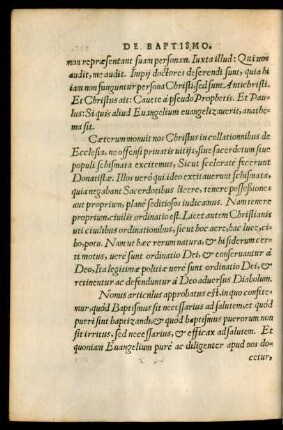 DE BAPTISMO.
non repræsentant suam personam. Iuxta illud: Qui uos
audit, me audit. Impij doctores deserendi sunt, quia hi
iam non funguntur persona Christi, sed sunt Antichristi.
Et Christus ait: Cauete à pseudo Prophetis. Et Pau-
lus: Si quis aliud Euangelium euangelizauerit, anathe-
ma sit.
Cæterum monuit nos Christus in collationibus de
Ecclesia, ne offensi priuatis uitijs, siue sacerdotum siue
populi schismata excitemus, sicut scelerate fecerunt
Donatistæ. Illos uerò qui ideo excitauerunt schismata,
quia negabant Sacerdotibus licere, tenere possessiones
aut proprium, planè seditiosos iudicamus. Nam tenere
proprium ciuilis ordinatio est. Licet autem Christianis
uti ciuilibus ordinationibus, sicut hoc aere, hac luce, ci-
bo, potu. Nam ut hæc rerum natura, & hi siderum cer-
ti motus, uere sunt ordinatio Dei, & conseruantur à
Deo, Ita legitimæ politiæ uere sunt ordinatio Dei, &
retinentur ac defenduntur à Deo aduersus Diabolum.
Nonus articulus approbatus est, in quo confite-
mur, quòd Baptismus sit necessarius ad salutem, et quòd
pueri sint baptizandi, & quod baptismus puerorum non
sit irritus, sed necessarius, & efficax ad salutem. Et
quoniam Euangelium purè ac diligenter apud nos do-
cetur,